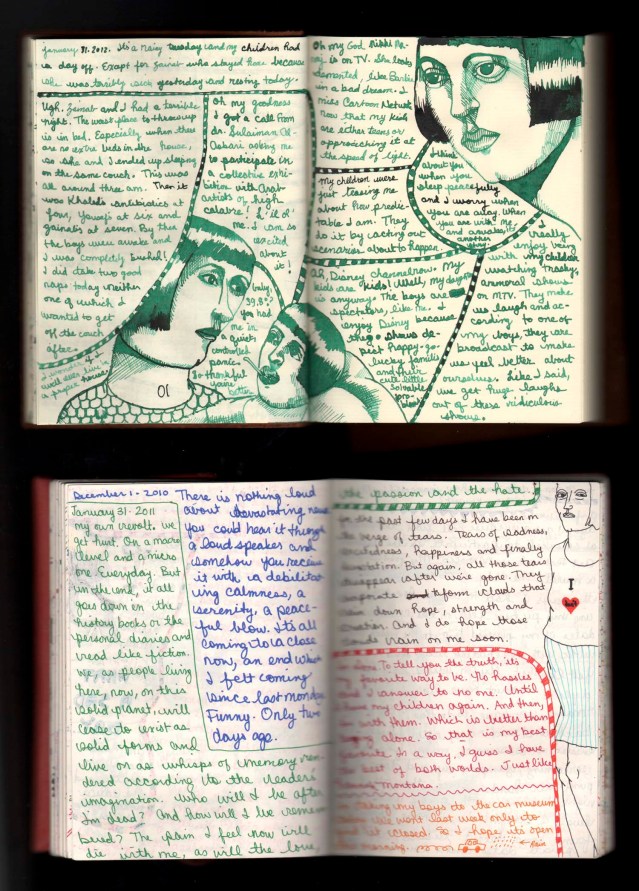 January 31. 2012. It's a rainy Tuesday and my children had
a day off. Except for Zeinat who stayed home because
she was terribly sick yesterday and resting today.
Ugh. Zeinat and I had a terrible
night. The worst place to throw up
is in bed. Especially when there
are no extra beds in the house,
so she and I ended up sleeping
on the same couch. This was
all around three am. Then it
was Khaled's antibiotics at
four, Yousef at six and
Zainat's at seven. By then
the boys were awake and
I was completely
I did take two good
naps today neither
one of which I
wanted to get
off the couch
after.
I wonder if
well does live in
a paper house.
oh my goodness
I got a call from
dr. Sulaiman Al-
Askari asking me
to participate in
a collective exhi-
bition with Arab
artists of high
calabre!
me. I am so
excited
about
it!
baby,
39.8°?
You had
me in
a quick
controlled
panic.
So thankful
you're
better
Oh my God Nikki Mi-
naj is on TV. She looks
demented, like Barbie
in a bad dream. I
miss Cartoon Network
now that my kids
are either teens or
approaching it at
the speed of light.
my children were
just teasing me
about how predic-
table I am. They
do it by acting out
scenarios about to happen.
I think
about you
when you
sleep peacefully
and I worry when
you are away. When
you are with me,
and awake, it's
another
story.
Ah, Disney channel now. My
kids are kids! Well, my daughter
is anyways. The boys are
spectators, like me. I
enjoy Disney because
the shows de-
pict happy-go-
lucky families
and their
cute little
solvable
pro-
blems
I really
enjoy very
with my children
watching trashy,
amoral shows
on MTV. They make
us laugh and ac-
cording to one of
my boys, they are
broadcast to make
us feel better about
ourselves. Like I said,
we get huge laughs
out of these ridiculous
shows.
December 1 - 2010
There is nothing loud
about devastating news
you could hear it through
a loud speaker and
somehow you receive
it with a debilitat-
ing calmness, a
serenity, a peace-
ful blow. It's all
coming to a close
now, an end which
I felt coming
since last monday
Funny. Only two
days ago.
January 31 - 2011
my own revolt, we
get hurt. On a macro
level and a micro
one. Everyday. But
in the end, it all
goes down on the
history books or the
personal diaries and
read like fiction.
We, as people living
here, now, on this
solid planet, will
cease to exist as
solid forms and
live on as whisps of memory ren-
dered according to the readers'
imagination. Who will I be after
I'm dead? And how will I be remem-
bered? The pain I feel now will
die with me, as will the love,
the passion and the hate.
In the past few days I have been on
the verge of tears. Tears of sadness,
happiness and
But again, all these tears
disappear after we're gone. They
evaporate and form clouds that
rain down hope, strength and
creation. And I do hope those
clouds rain on me soon.
I
alone. To tell you the truth, it's
my favorite way to be. No hassles
and I answer to no one. Until
I have my children again. And then,
I'm with them. Which is better than
being alone. So that is my best
favorite in a way. I guess I have
the best of both worlds. Just like
Hannah Montana.
taking my boys to the car museum
we went last week only to
find it closed. So I hope it's open
this morning.
← Rain